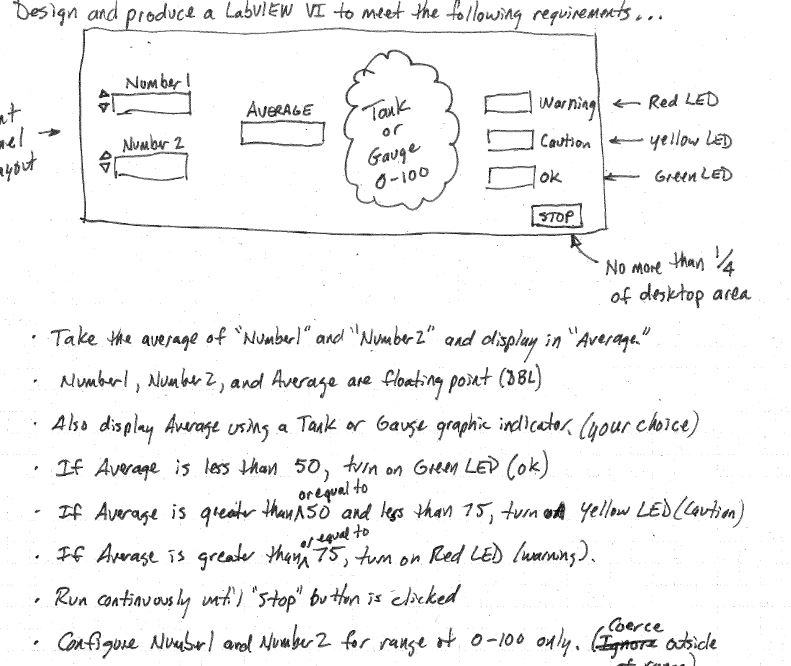 Design and produce a LabVIEW VI to meet the following requirements...
Number1
Number 2
AVERAGE
Tank
or
Gauge
0-100
Warning ← Red LED
Caution ← yellow LED
Ok ← Green LED
STOP
No more than 1/4
of desktop area
· Take the average of "Number1" and "Number2" and display in "Average."
· Number1, Number2, and Average are floating point (DBL)
· Also display Average using a Tank or Gauge graphic indicator. (your choice)
· If Average is less than 50, turn on Green LED (ok)
or equal to
· If Average is greater than ^ 50 and less than 75, turn on Yellow LED (Caution)
or equal to
· If Average is greater than ^ 75, turn on Red LED (warning).
· Run continuously until "Stop" button is clicked
Coerce
· Configure Number1 and Number2 for range of 0-100 only. (Ignore outside
of range)